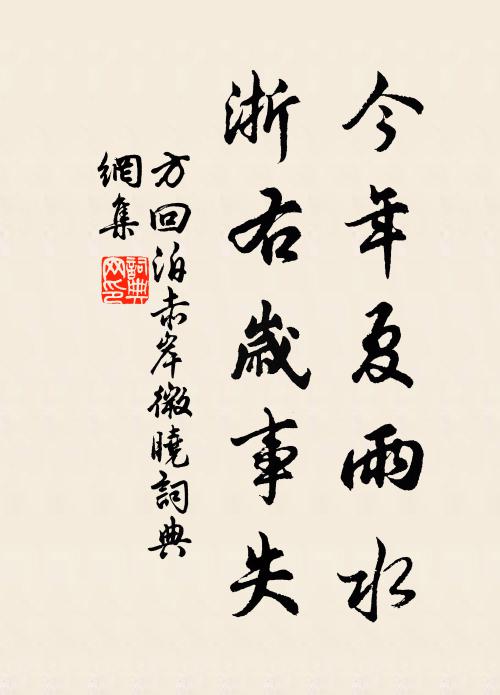 今年夏雨水
浙右歲事失
方回泊赤岸微曉詞典
網集
詞典
网印